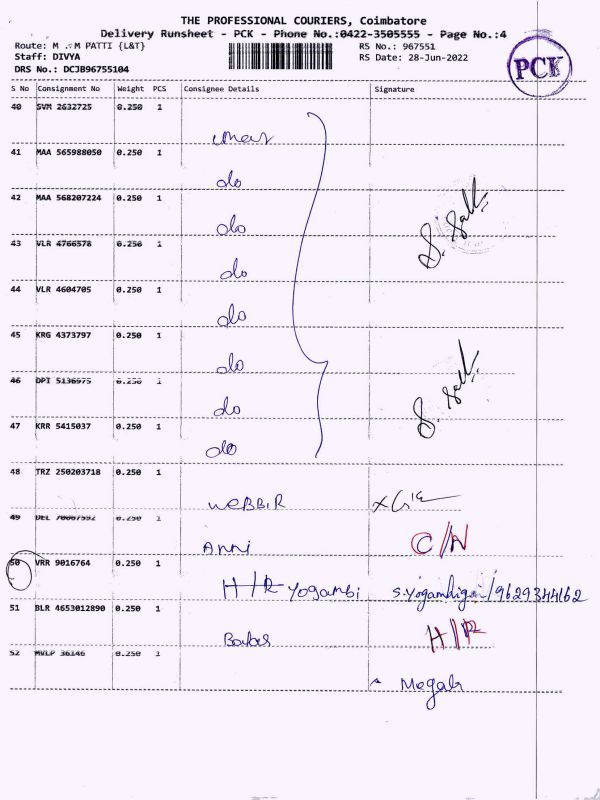 THE PROFESSIONAL COURIERS, Coimbatore
Delivery Runsheet - PCK - Phone No.:0422-3505555 - Page No.:4
Route: M .M PATTI {L&T} RS No.: 967551
Staff: DIVYA RS Date: 28-Jun-2022
DRS No.: DCJB96755104
PCK
S No Consignment No Weight PCS Consignee Details Signature
40 SVM 2632725 0.250 1
41 MAA 565988050 0.250 1
do
42 MAA 568207224 0.250 1
do
43 VLR 4766578 0.250 1
do
44 VLR 4604705 0.250 1
do
45 KRG 4373797 0.250 1
do
46 DPI 5136975 0.250 1
do
47 KRR 5415037 0.250 1
do
48 TRZ 250203718 0.250 1
WEBBIR
49 DEL 0.250 1
ANNI C/N
50 VRR 9016764 0.250 1
H/R Yogambi S.Yogambigai/9629344162
51 BLR 4653012890 0.250 1
H/R
52 MVLP 36146 0.250 1
Megala